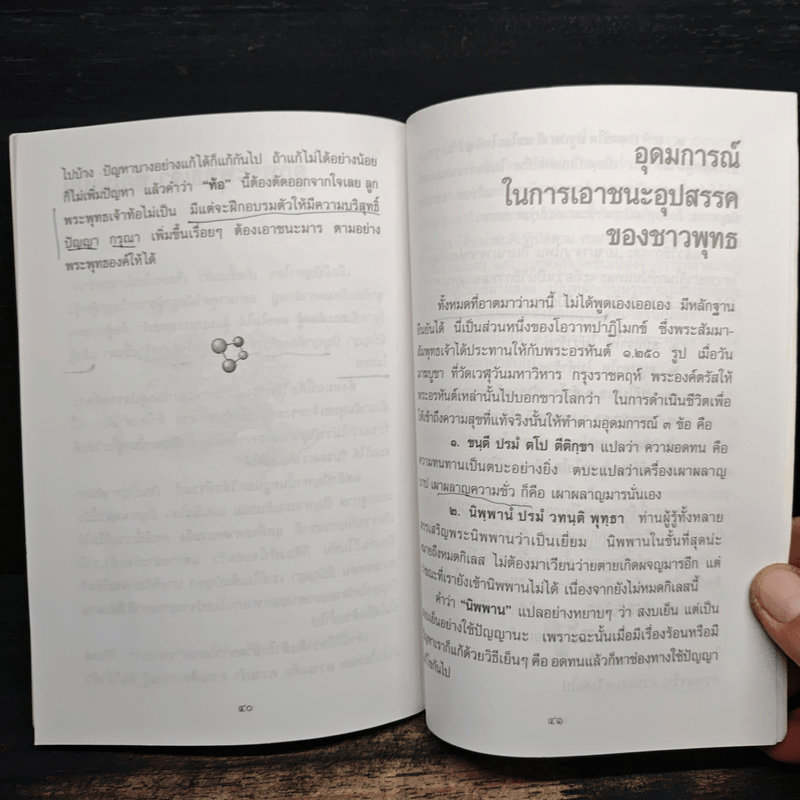 ไปบ้าง ปัญหาบางอย่างแก้ได้ก็แก้กันไป ถ้าแก้ไม่ได้อย่างน้อย
ก็ไม่เพิ่มปัญหา แล้วคำว่า “ท้อ” นี้ต้องตัดออกจากใจเลย ลูก
พระพุทธเจ้าท้อไม่เป็น มีแต่จะฝึกอบรมตัวให้มีความบริสุทธิ์
ปัญญา กรุณา เพิ่มขึ้นเรื่อยๆ ต้องเอาชนะมาร ตามอย่าง
พระพุทธองค์ให้ได้
๔๐
อุดมการณ์
ในการเอาชนะอุปสรรค
ของชาวพุทธ
ทั้งหมดที่อาตมาว่ามานี้ ไม่ได้พูดเองเออเอง มีหลักฐาน
ยืนยันได้ นี่เป็นส่วนหนึ่งของโอวาทปาฏิโมกข์ ซึ่งพระสัมมา-
สัมพุทธเจ้าได้ประทานให้กับพระอรหันต์ ๑,๒๕๐ รูป เมื่อวัน
มาฆบูชา ที่วัดเวฬุวันมหาวิหาร กรุงราชคฤห์ พระองค์ตรัสให้
พระอรหันต์เหล่านั้นไปบอกชาวโลกว่า ในการดำเนินชีวิตเพื่อ
ให้เข้าถึงความสุขที่แท้จริงนั้นให้ทำตามอุดมการณ์ ๓ ข้อ คือ
๑. ขนฺตี ปรมํ ตโป ตีติกฺขา แปลว่า ความอดทน คือ
ความทนทานเป็นตบะอย่างยิ่ง ตบะแปลว่าเครื่องเผาผลาญ
เผาผลาญความชั่ว ก็คือ เผาผลาญมารนั่นเอง
๒. นิพฺพานํ ปรมํ วทนฺติ พุทฺธา ท่านผู้รู้ทั้งหลาย
สรรเสริญพระนิพพานว่าเป็นเยี่ยม นิพพานในขั้นที่สุดน่ะ
หมายถึงหมดกิเลส ไม่ต้องมาเวียนว่ายตายเกิดผจญมารอีก แต่
ขณะที่เรายังเข้านิพพานไม่ได้ เนื่องจากยังไม่หมดกิเลสนี้
คำว่า “นิพพาน” แปลอย่างหยาบๆ ว่า สงบเย็น แต่เป็น
สงบเย็นอย่างใช้ปัญญานะ เพราะฉะนั้นเมื่อมีเรื่องร้อนหรือมี
ปัญหาเราก็แก้ด้วยวิธีเย็นๆ คือ อดทนแล้วก็หาช่องทางใช้ปัญญา
แก้ไขกันไป
๔๑